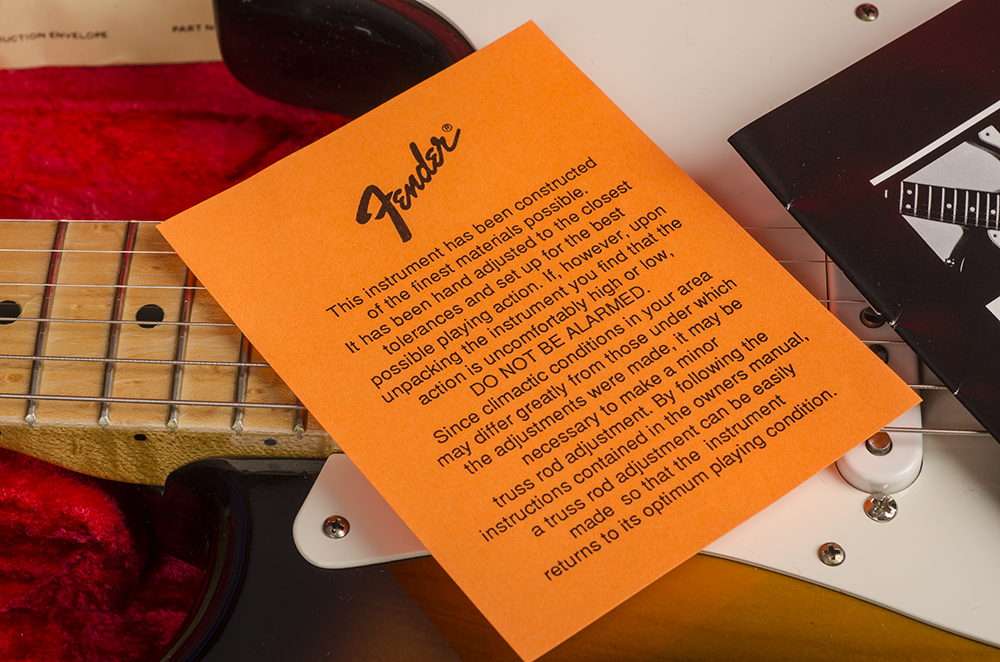 UCTION ENVELOPE
PART N
Fender®
This instrument has been constructed
of the finest materials possible.
It has been hand adjusted to the closest
tolerances and set up for the best
possible playing action. If, however, upon
unpacking the instrument you find that the
action is uncomfortably high or low,
DO NOT BE ALARMED.
Since climactic conditions in your area
may differ greatly from those under which
the adjustments were made, it may be
necessary to make a minor
truss rod adjustment. By following the
instructions contained in the owners manual,
a truss rod adjustment can be easily
made so that the instrument
returns to its optimum playing condition.